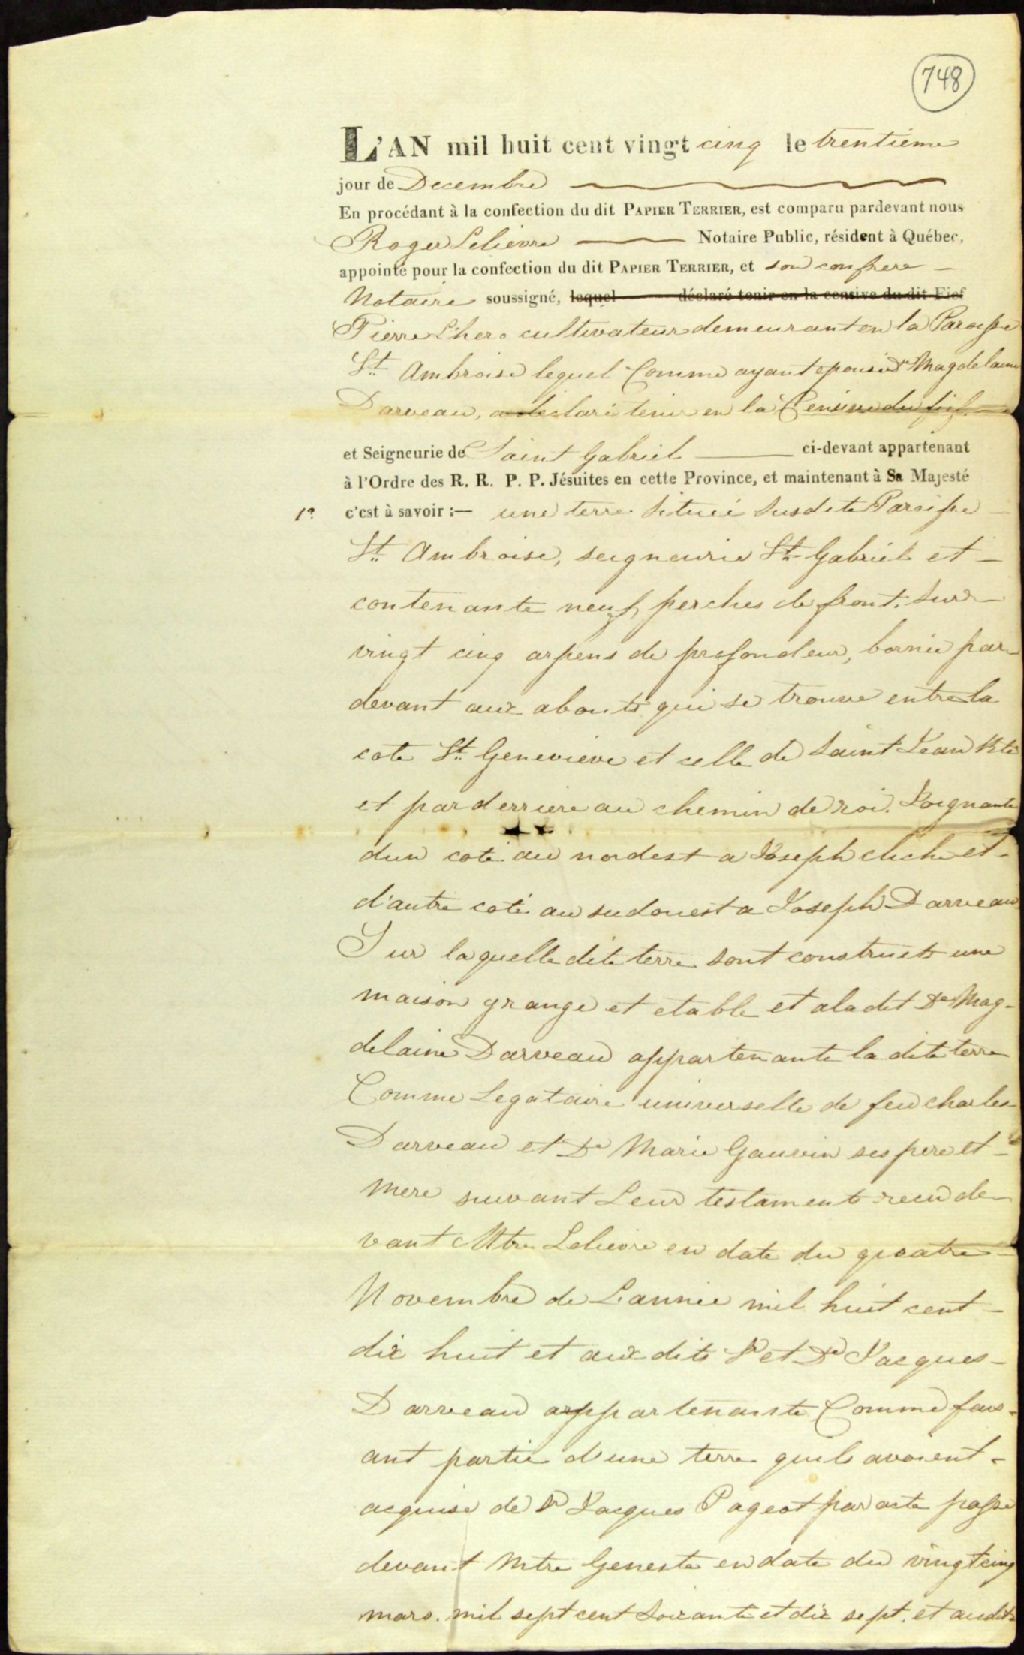 748
L'AN mil huit cent vingt cinq le trentieme
jour de Decembre
En procédant à la confection du dit PAPIER TERRIER, est comparu pardevant nous
Roger Lelievre Notaire Public, résident à Québec,
appointé pour la confection du dit PAPIER TERRIER, et son confrere
Notaire soussigné, lequel déclaré tenir en la censive du dit Fief
Pierre L'hero cultivateur demeurant en la Paroisse
St. Ambroise lequel Comme ayant epousé De Magdelaine
Darveau, a declaré tenir en la Censive du fief
et Seigneurie de Saint Gabriel ci-devant appartenant
à l'Ordre des R. R. P. P. Jésuites en cette Province, et maintenant à Sa Majesté
1o. c'est à savoir :— une terre située susdite Paroisse
St. Ambroise, seigneurie St. Gabriel et
contenante neuf perches de front, sur
vingt cinq arpens de profondeur, bornée par
devant aux abouts qui se trouve entre la
cote St. Genevieve et celle de Saint Jean Bte
et par derriere au chemin de roi. Joignante
d'un coté au nordest a Joseph cliche et
d'autre coté au sudouest a Joseph Darveau
Sur laquelle dite terre sont construits une
maison grange et etable et aladit De Mag-
delaine Darveau appartenante la dite terre
Comme Legataire universelle de feu charles
Darveau et De Marie Gauvin ses pere et
Mere suivant Leur testament recu de
vant Mtre Lelievre en date du quatre
Novembre de L'année mil huit cent
dix huit et aux dits Sr et De Jacques
Darveau appartenante Comme fais-
ant partie d'une terre quils avoient
acquise de Sr Jacques Pageot par acte passé
devant Mtre Geneste en date du vingt cinq
mars mil sept cent soixante et dix sept, et audits